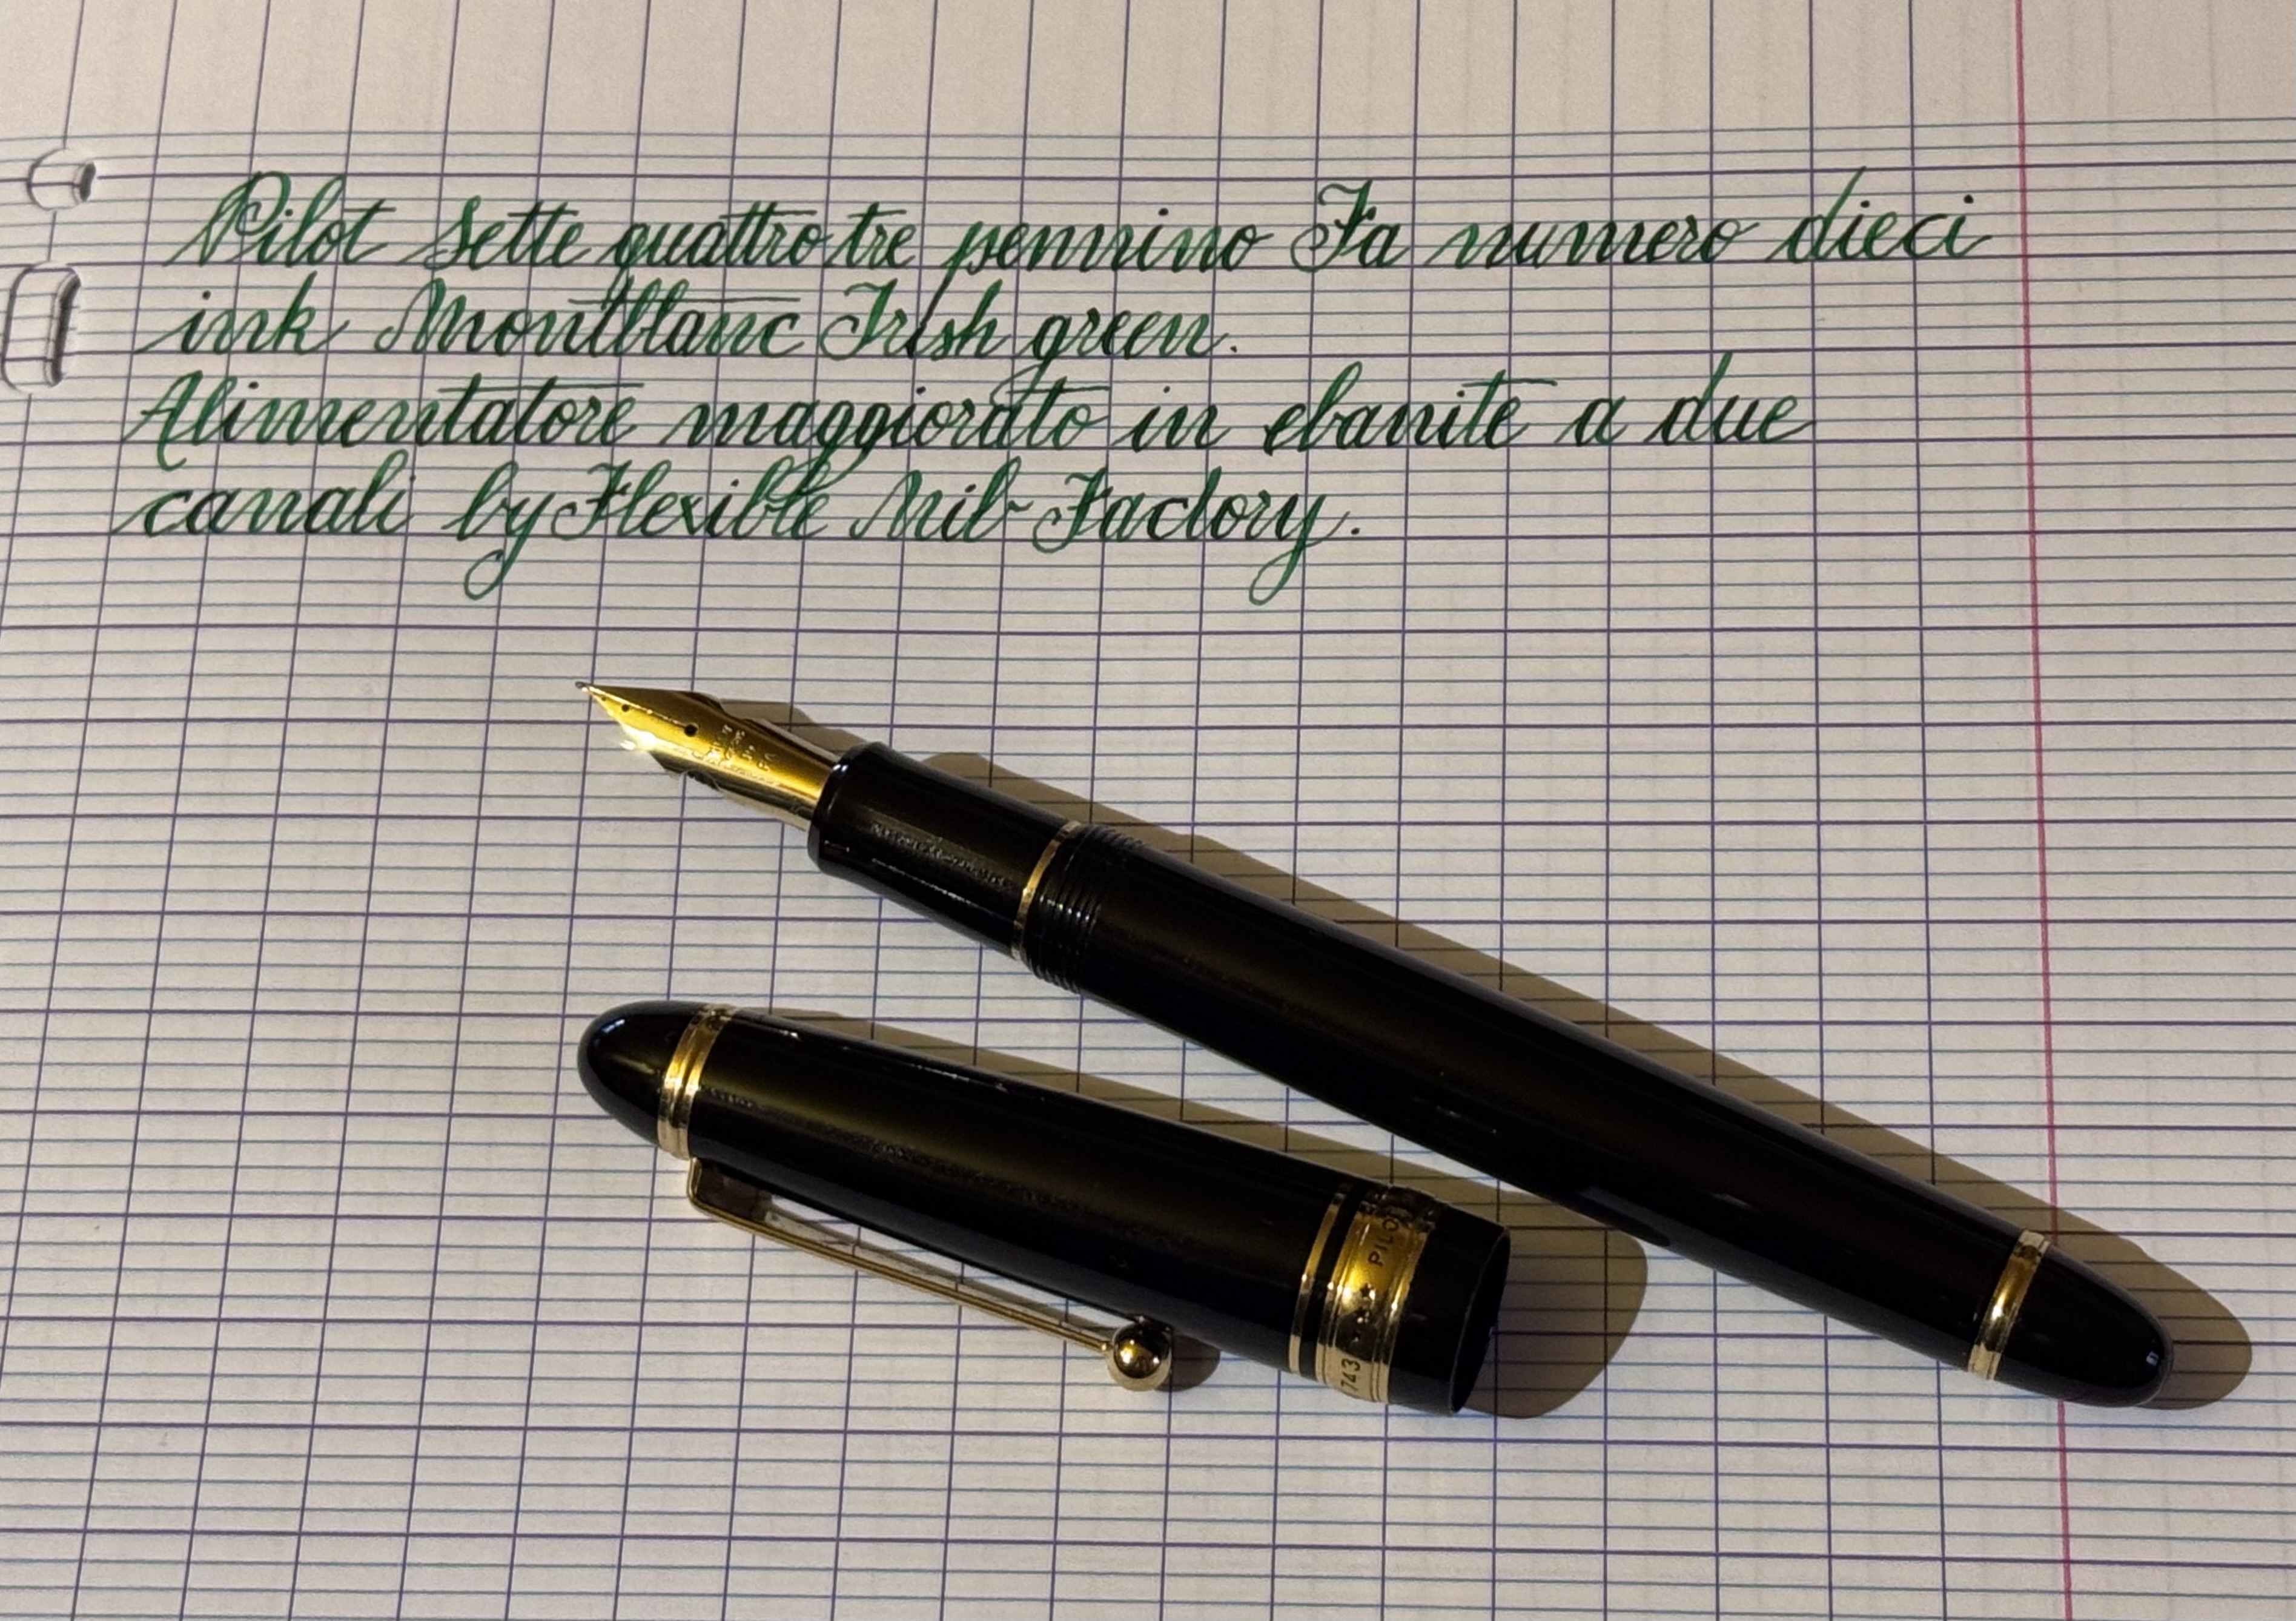 Pilot sette quattro tre pennino Fa numero dieci
ink Montblanc Irish green.
Alimentatore maggiorato in ebanite a due
canali by Flexible Nib-Factory.
PILO
743